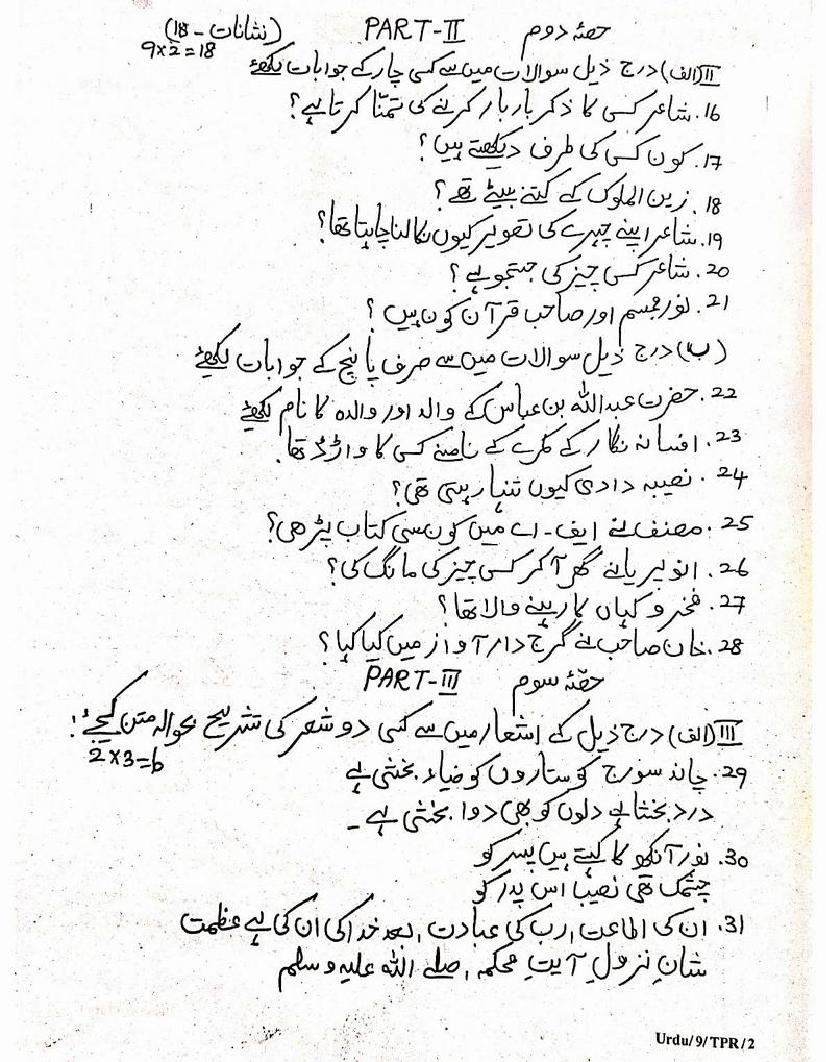 حصّۂ دوم PART-II (نشانات - 18)
9x2=18
II(الف) درج ذیل سوالات میں سے کسی چار کے جوابات لکھئے
16. شاعر کس کا ذکر بار بار کرنے کی تمنّا کرتا ہے؟
17. کون کس کی طرف دیکھتے ہیں؟
18. زین الملوک کے کتنے بیٹے تھے؟
19. شاعر اپنے چہرے کی تصویر کیوں نکالنا چاہتا تھا؟
20. شاعر کس چیز کی جستجو ہے؟
21. نورِ مجسم اور صاحب قرآن کون ہیں؟
(ب) درج ذیل سوالات میں سے صرف پانچ کے جوابات لکھئے
22. حضرت عبداللہ بن عباس کے والد اور والدہ کا نام لکھئے
23. افسانہ نگار کے کمرے کے سامنے کس کا وارڈ تھا
24. نصیبہ دادی کیوں تنہا رہتی تھی؟
25. مصنف نے ایف-اے میں کون سی کتاب پڑھی؟
26. انو نے گھر آکر کس چیز کی مانگ کی؟
27. فخرو کہاں کا رہنے والا تھا؟
28. خان صاحب نے گرج دار آواز میں کیا کہا؟
حصّۂ سوم PART-III
III(الف) درج ذیل کے اشعار میں سے کسی دو شعر کی تشریح بحوالہ متن کیجئے!
2x3=6
29. چاند سورج کو ستاروں کو ضیاء بخشی ہے
درد بخشا ہے دلوں کو بھی دوا بخشی ہے -
30. نور آنکھ کا کہتے ہیں پسر کو
چشمک تھی نصیب اس پدر کو
31. ان کی اطاعت، رب کی عبادت، بعد خدا کی ان کی ہے عظمت
شانِ نزولِ آیتِ محکم، صلے اللہ علیہ وسلم
Urdu/9/TPR/2